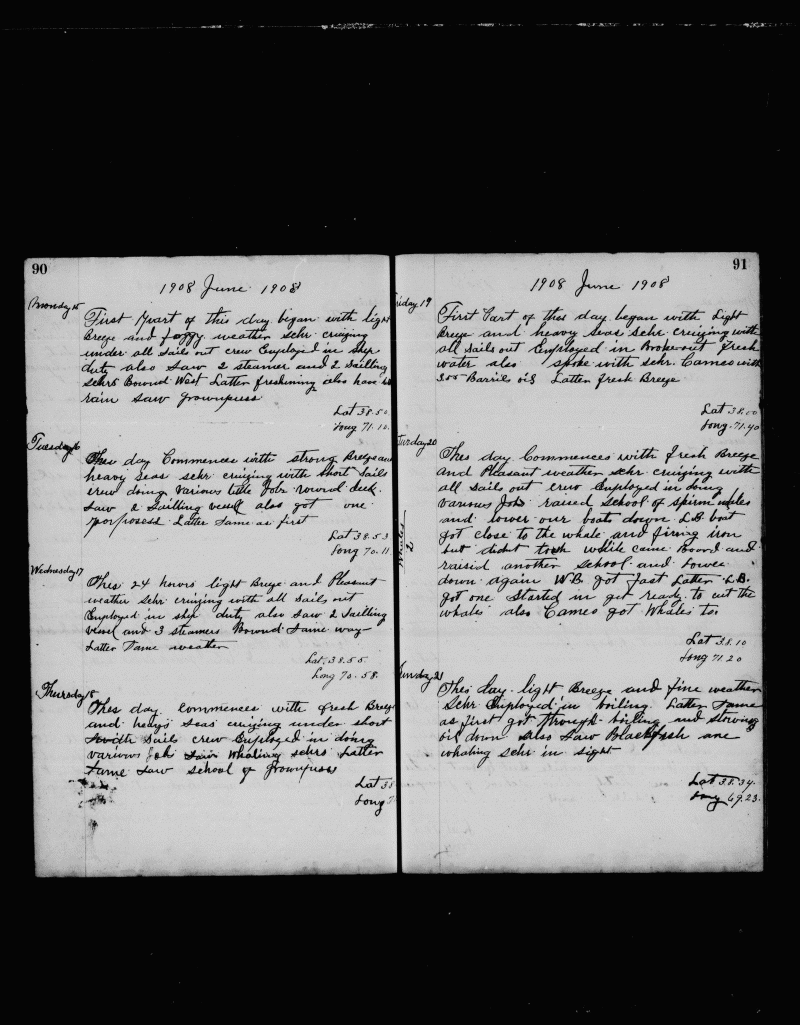 90
1908 June 1908
Monday 15
First Part of this day began with light
Breeze and foggy weather Schr. cruizing
under all Sails out crew Employed in Ship
duty also Saw 2 steamer and 2 Sailling
Schrs Bound West Latter freshining also have
rain Saw grownpuss
Lat 38.50
Long 71.10
Tuesday 16
This day Commences with strong Breeze and
heavy Seas schr cruizing with Short Sails
crew doing various little Jobs round deck.
Saw 2 Sailling vessel also got one
porposess Latter Same as first
Lat 38.53
Long 70.11
Wednesday 17
Thes 24 hours light Breeze and Pleasant
weather Schr cruizing with all Sails out
Employed in Ship duty also Saw 2 Sailling
vessel and 3 steamers Bownd Same way
Latter Same weather
Lat. 38.55
Long 70.58
Thursday 18
Thes day commences with fresh Breeze
and heavy Seas cruizing under short
Sails crew Employed in doing
various Job Saw Whaling schrs Latter
Same Saw School of grownpuss
Lat 38
Long 7
91
1908 June 1908
Friday 19
First Part of this day began with Light
Breeze and heavy Seas Schr. cruizing with
all Sails out Employed in Brokeout fresh
water also spoke with schr. Cameo with
300 Barrils oil Latter fresh Breeze
Lat 38.00
Long. 71.40
Saturday 20
Thes day Commences with fresh Breeze
and Pleasant weather Schr cruizing with
all Sails out crew Employed in doing
various Jobs raised School of Spirm wales
and lower our boats down L.B. boat
got close to the whale and firing iron
but didnt took while came Board and
raised another School and Lower
down again W.B. got fast Latter L.B.
got one Started in get ready to cut the
whales also Cameo got Whales too
Whales
2
Lat 38.10
Long 71.20
Sunday 21
This day light Breeze and fine weather
Schr Employed in boiling Latter Same
as first got through boiling and stowing
oil down also Saw Blackfish one
whaling schr in Sight
Lat 38.34.
Long 69.23.